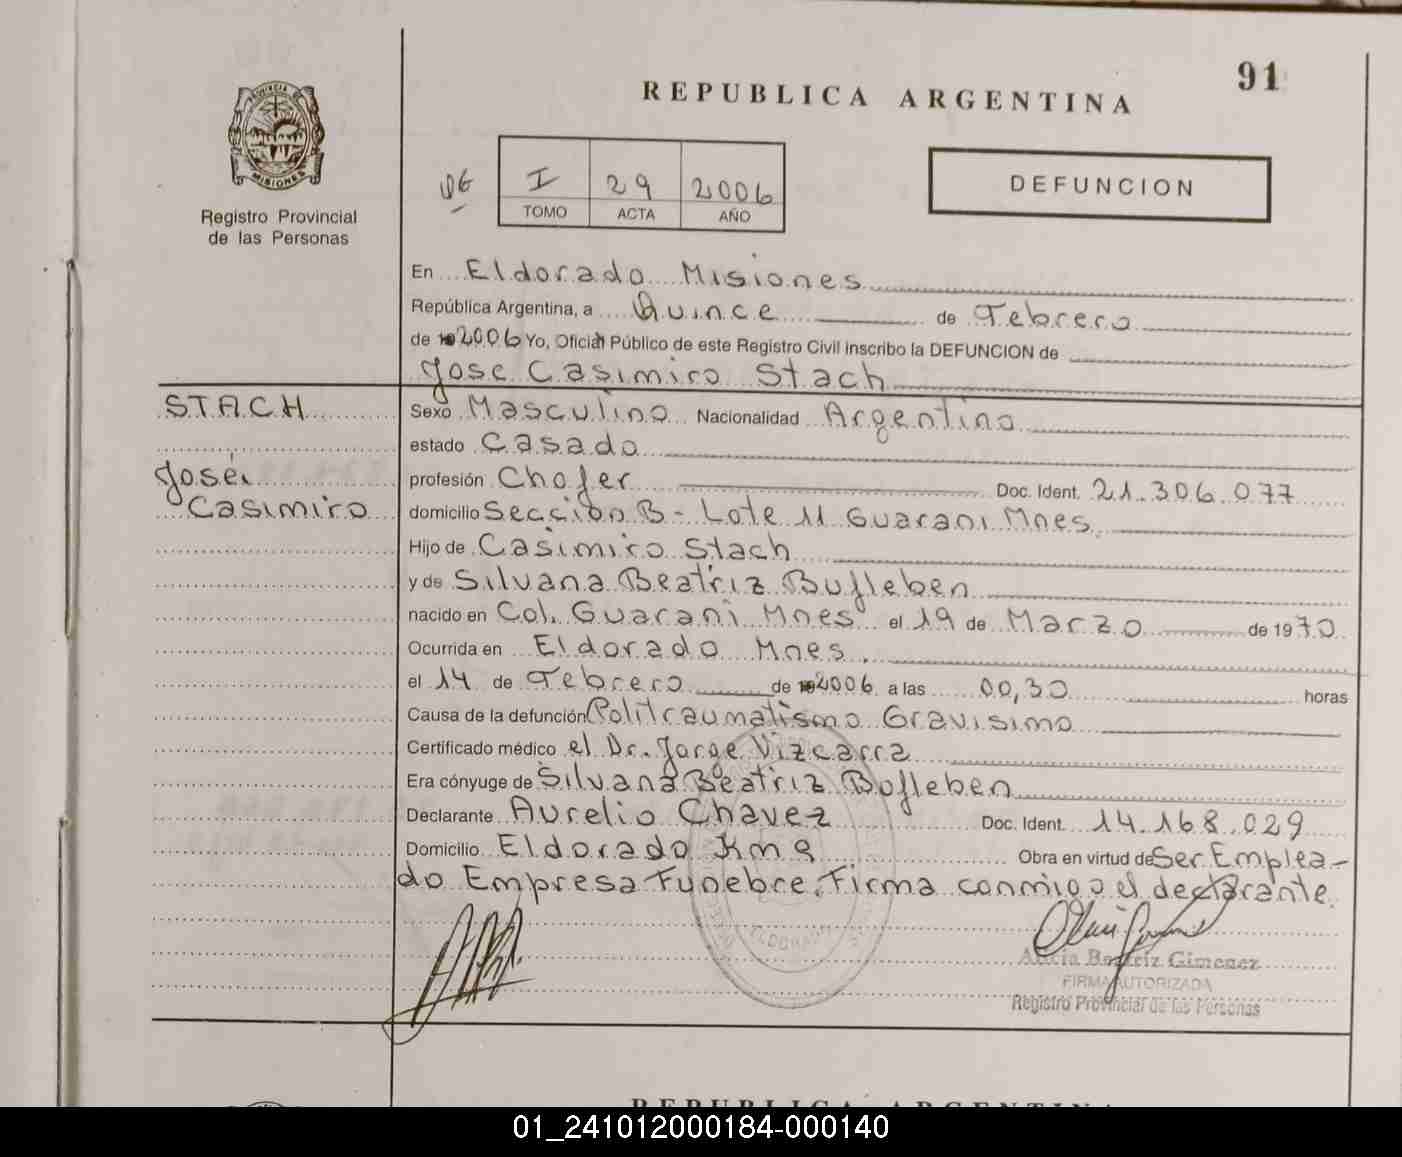 91
REPUBLICA ARGENTINA
PROVINCIA DE
MISIONES
Registro Provincial
de las Personas
I 29 2006
TOMO ACTA AÑO
DEFUNCION
En Eldorado Misiones
República Argentina, a Quince de Febrero
de 2006 Yo, Oficial Público de este Registro Civil inscribo la DEFUNCION de
Jose Casimiro Stach
STACH
José
Casimiro
Sexo Masculino Nacionalidad Argentino
estado Casado
profesión Chofer Doc. Ident. 21.306.077
domicilio Sección B - Lote 11 Guarani Mnes.
Hijo de Casimiro Stach
y de Silvana Beatriz Bufleben
nacido en Col. Guarani Mnes el 19 de Marzo de 1970
Ocurrida en Eldorado Mnes.
el 14 de Febrero de 2006 a las 00,30 horas
Causa de la defunción Politraumatismo Gravisimo
Certificado médico el Dr. Jorge Vizcarra
Era cónyuge de Silvana Beatriz Bofleben
Declarante Aurelio Chavez Doc. Ident. 14.168.029
Domicilio Eldorado Km 9 Obra en virtud de Ser Emplea-
do Empresa Funebre. Firma conmigo el declarante.
Alicia Beatriz Gimenez
FIRMA AUTORIZADA
Registro Provincial de las Personas
ELDORADO
REPUBLICA ARGENTINA
01_241012000184-000140